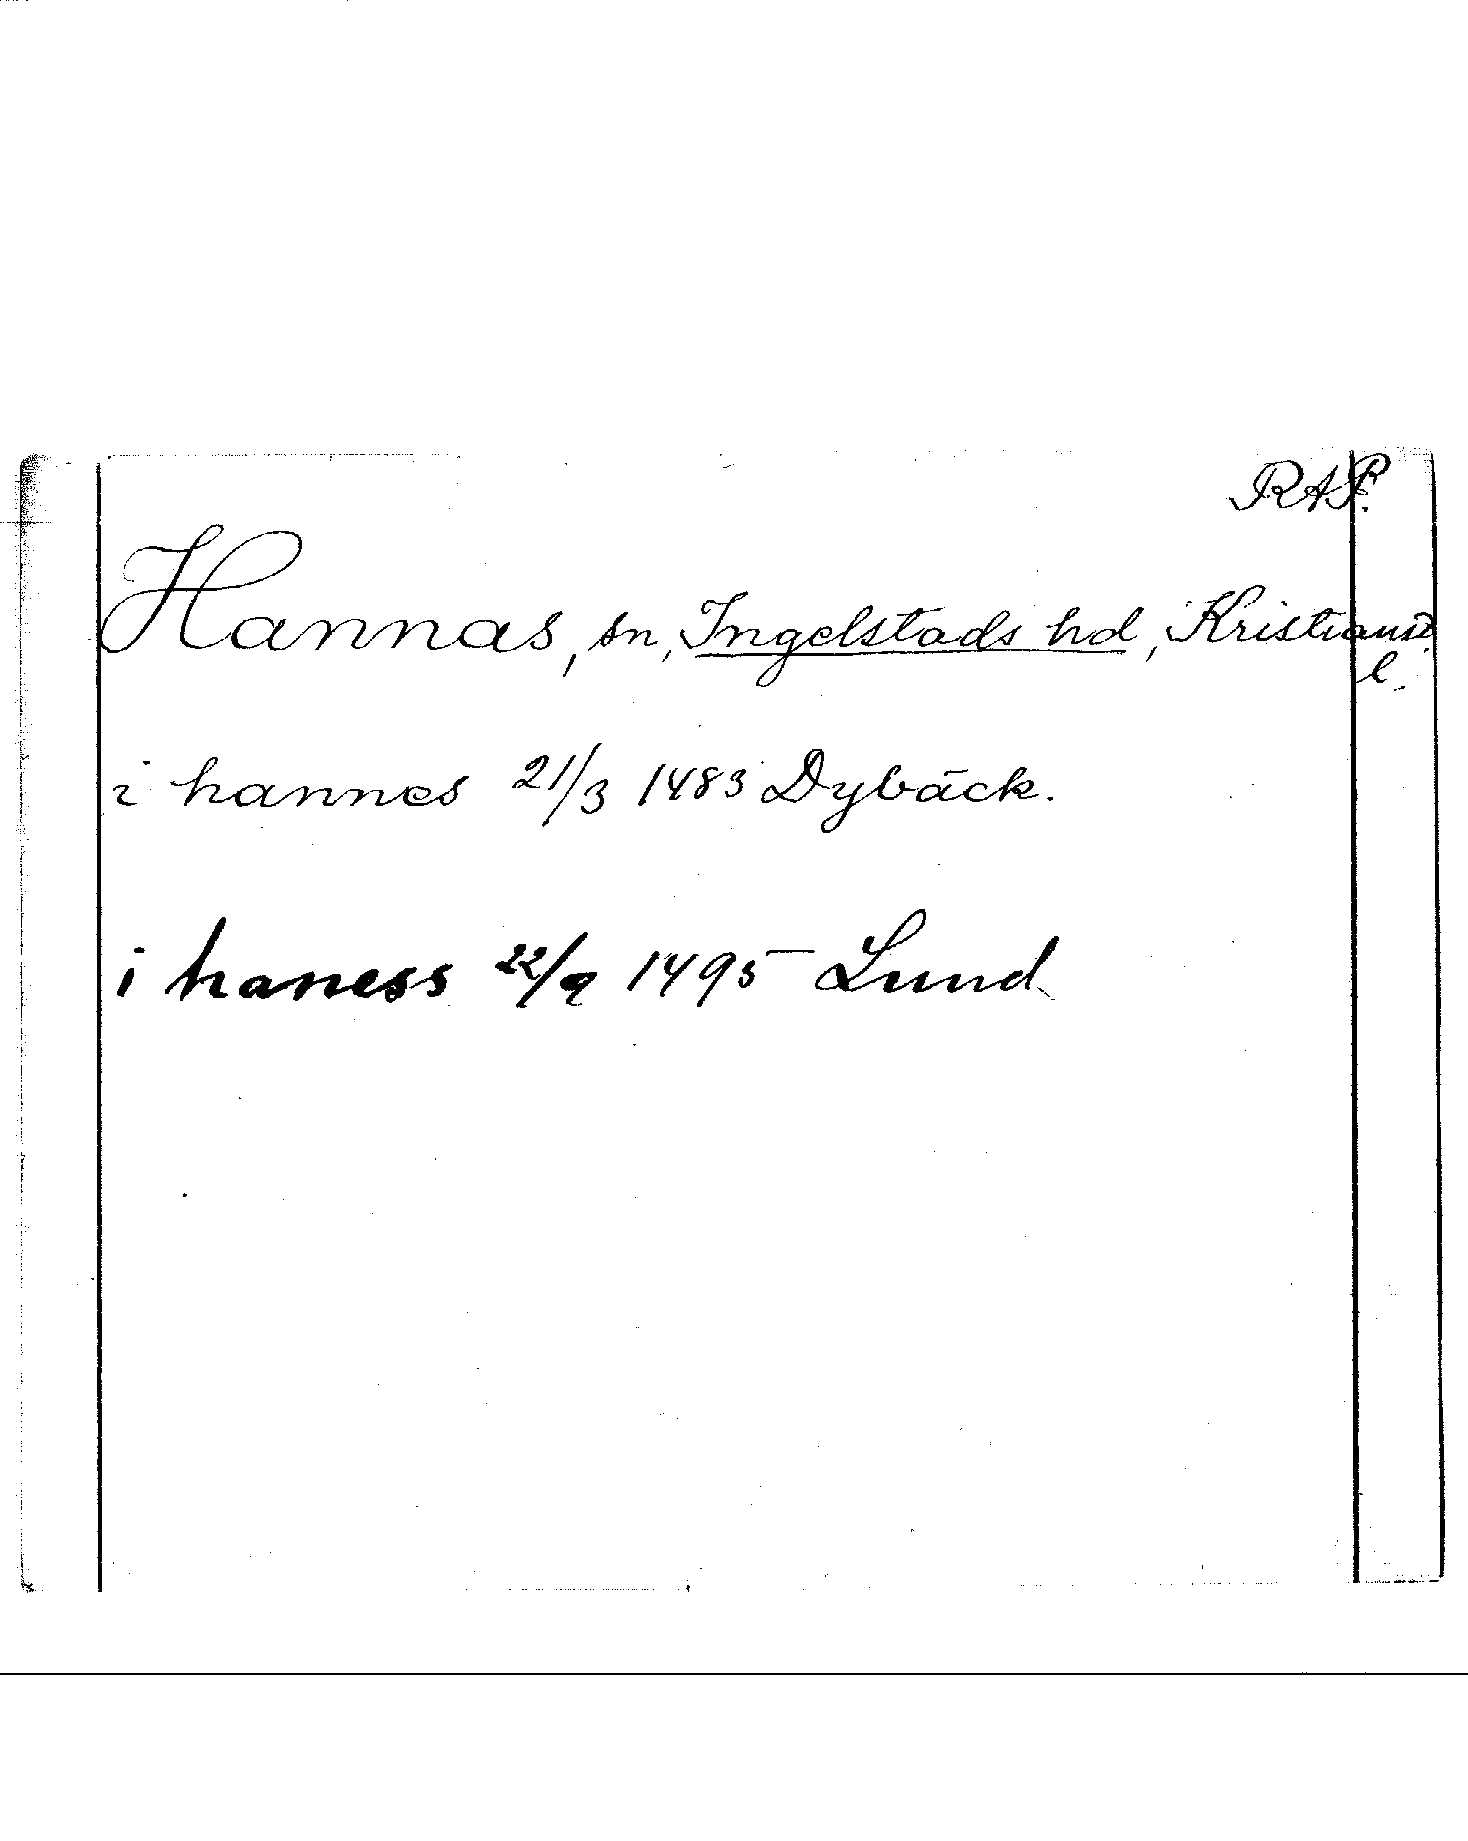 RAP.
Hannas, sn, Ingelstads hd, Kristianst.
l.
i hannes 21/3 1483 Dybäck.
i haness 22/9 1495 Lund